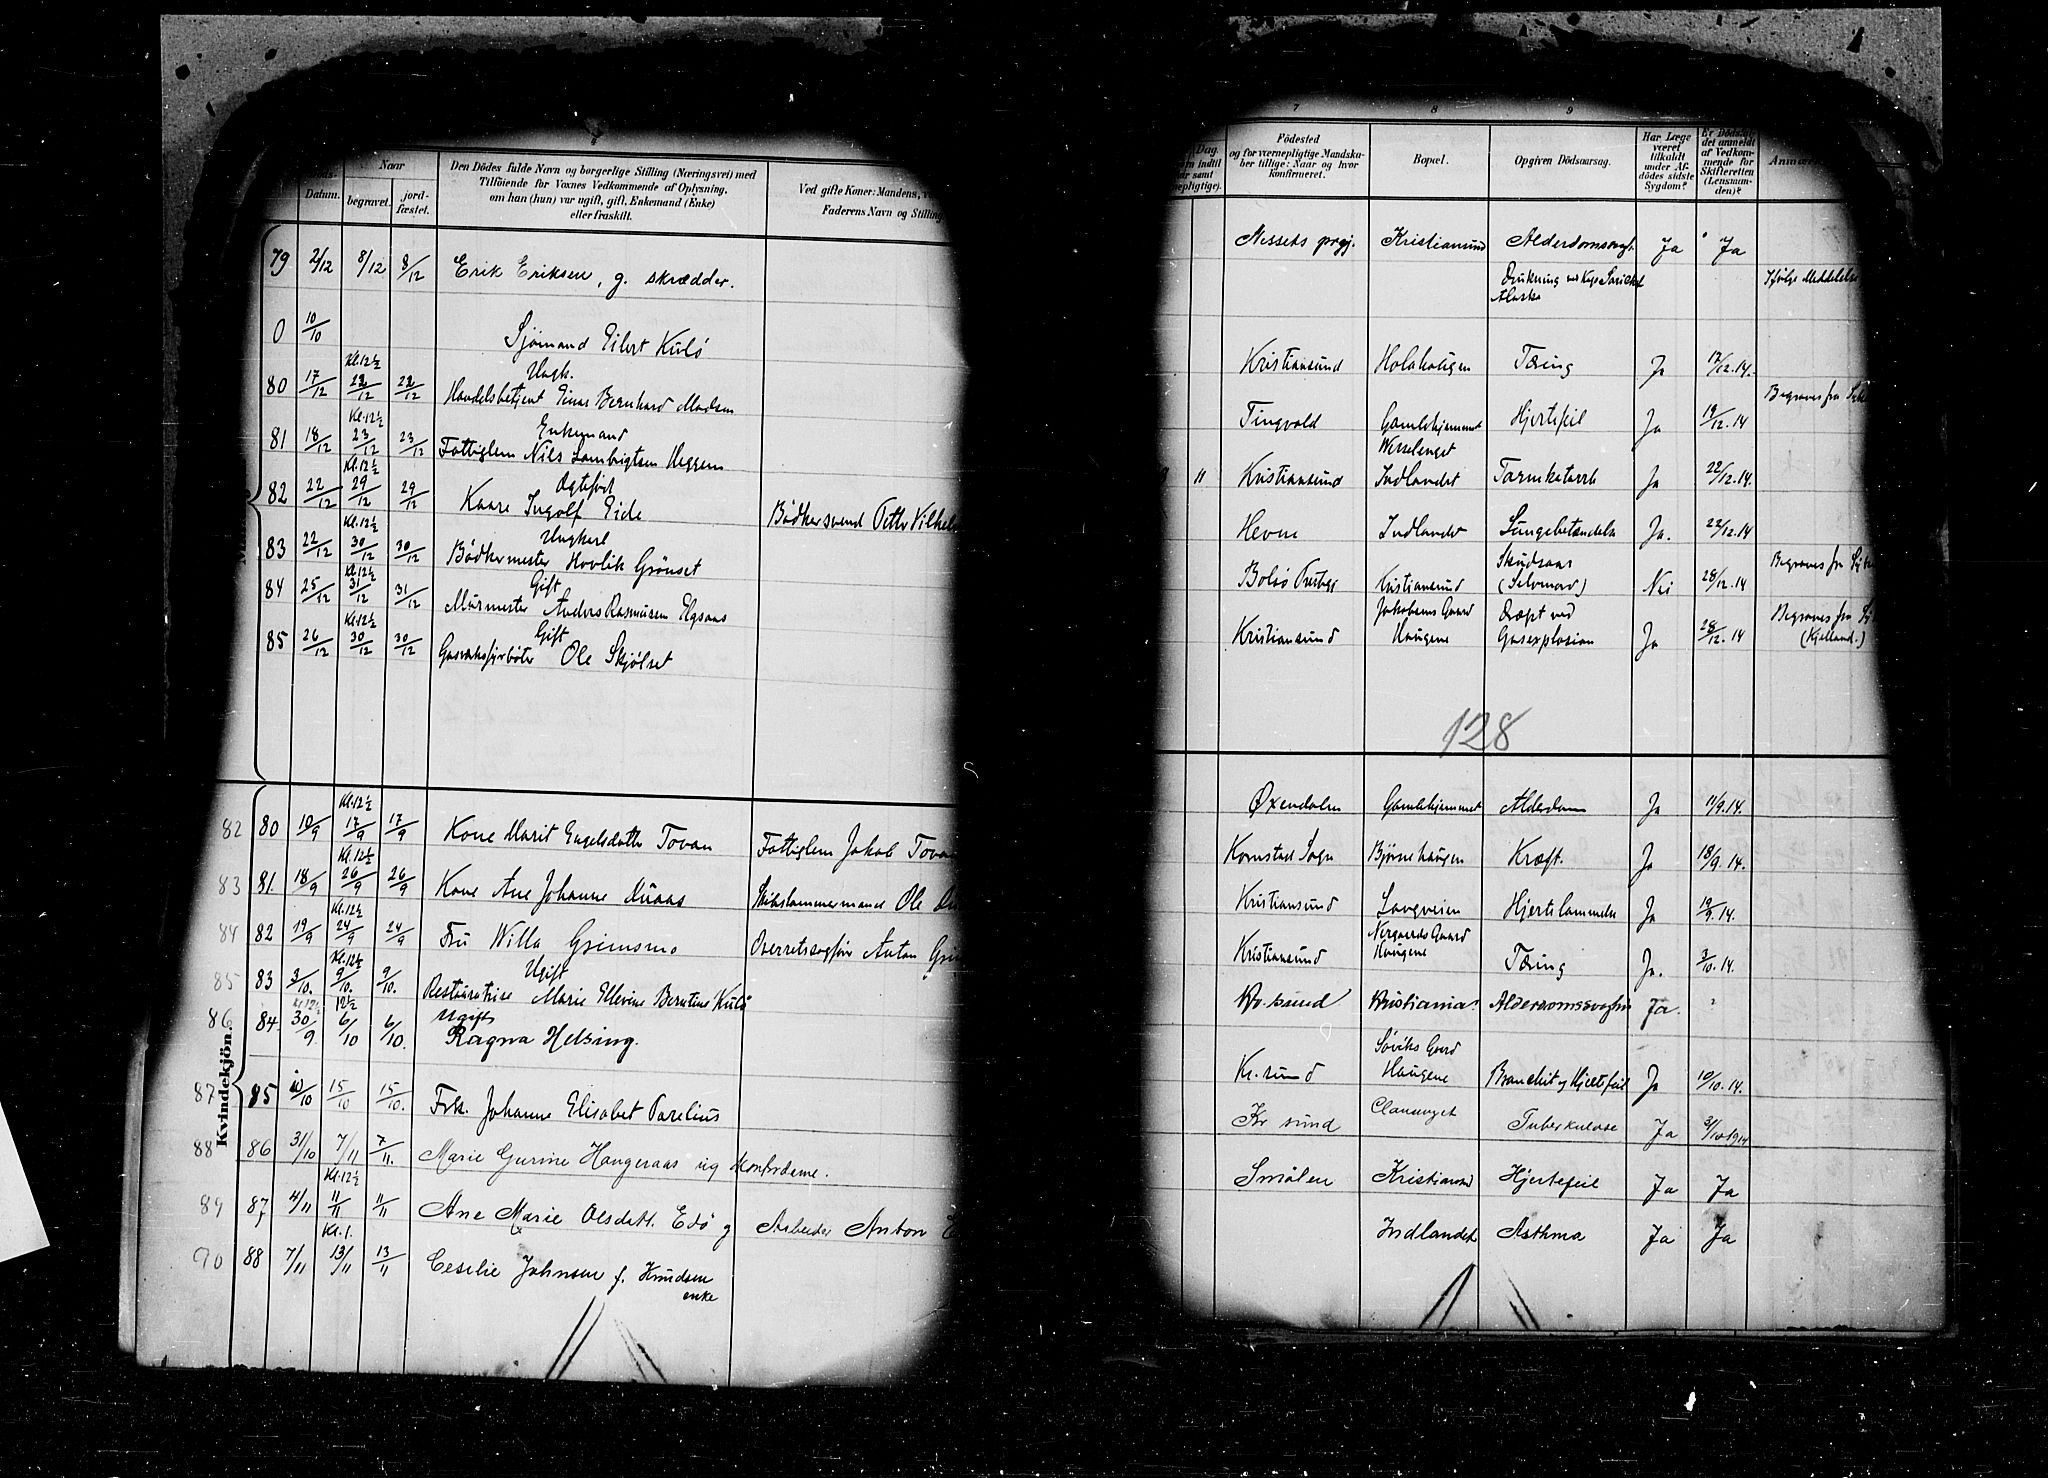 Naar
Datum.
begravet.
jord-
fæstet.
4
Den Dödes fulde Navn og borgerlige Stilling (Næringsvei) med
Tilföiende for Voxnes Vedkommende af Oplysning,
om han (hun) var ugift, gift, Enkemand (Enke)
eller fraskilt.
Ved gifte Koner: Mandens,
Faderens Navn og Stilling
79 2/12 8/12 8/12 Erik Eriksen, g. skrædder.
0 10/10 Sjømand Eilert Kulø
Kl. 12½ Ungk.
80 17/12 22/12 22/12 Handelsbetjent Einar Bernhard Madsen
Kl. 12½ Enkemand
81 18/12 23/12 23/12 Fattiglem Nils Heggem
Kl. 12½ Ægtefød
82 22/12 29/12 29/12 Kaare Ingolf Eide Bødkersvend Petter Vilhel
Kl. 12½ Ungkarl
83 22/12 30/12 30/12 Bødkermester Hovlik Grønset
Kl. 12½ Gift
84 25/12 31/12 31/12 Murmester Anders Rasmusen
Kl. 12½ Gift
85 26/12 30/12 30/12 Gasværksfyrbøter Ole Skjølset
Kvindekjön.
Kl. 12½
82 80 10/9 17/9 17/9 Kone Marit Engelsdatter Tovan Fattiglem Jakob Tova
Kl. 12½
83 81. 18/9 26/9 26/9 Kone Ane Johanne Duaas Skibstømmermand Ole Du
Kl. 12½
84 82 19/9 24/9 24/9 Fru Willa Grimsmo Overretssagfører Anton Gri
Kl. 12½ Ugift
85 83 3/10. 9/10. 9/10. Restauratrise Marie Ellevine Berntine Kulø
12½ Ugift
86 84. 30/9 6/10 6/10. Ragna Helsing.
87 85 10/10 15/10 15/10. Frk. Johanne Elisabet Parelius
88 86 31/10 7/11 7/11. Marie Gurine Hangeraas ug kontordame.
Kl. 12½
89 87 4/11 11/11 11/11 Ane Marie Olsdatt. Edø g Arbeider Anton E
Kl. 1.
90 88 7/11 13/11 13/11 Cecilie Johnsen f. Knudsen
enke
7 8 9
Dag.
indtil
samt
Födested
og for værnepligtige Mandska-
ber tillige: Naar og hvor
konfirmeret.
Bopæl.
Opgiven Dödsaarsag.
Har Læge
været
tilkaldt
under Af-
dödes sidste
Sygdom?
Er Dödsfal-
det anmeldt
af Vedkom-
mende for
Skifteretten
(Lensman-
den)?
Anmær
Nessets prgj. Kristiansund Alderdomssvagh. Ja Ja
Drukning ved Kap Sarichef
Alaska
Ifølge Meddelelse
Kristiansund Holahaugen Tæring Ja 17/12.14.
Begraves fra
Tingvold Gamlehjemmet Hjertefeil Ja 19/12.14
Wesselenget
11 Kristiansund Indlandet Tarmkatarrh Ja 22/12.14.
Hevne Indlandet Lungebetændelse Ja. 22/12.14
Skudsaar
Begraves fra
Bolsø Prestgj Kristiansund (Selvmord) Nei 28/12.14
Jakobsens Gaard Dræpt ved
Begraves fra
Kristiansund Haugene Gasexplosion Ja 28/12.14
(Kjelland.)
128
Øxendalen Gamlehjemmet Alderdom Ja 11/9.14.
Kornstad Sogn Bjørnehaugen Kræft. Ja 18/9.14.
Kristiansund Langveien Hjertelammelse Ja 19/9.14.
Nergaards Gaard
Kristiansund Haugene Tæring Ja. 3/10.14.
Kr. sund Kristiania. Alderdomssvaghed Ja. ?
Søviks Gaard
Kr. sund Haugene Bronchit og Hjertefeil Ja 10/10.14.
Kr sund Clausenget Tuberkulose Ja
Smølen Kristiansund Hjertefeil Ja Ja
Indlandet Asthma Ja Ja